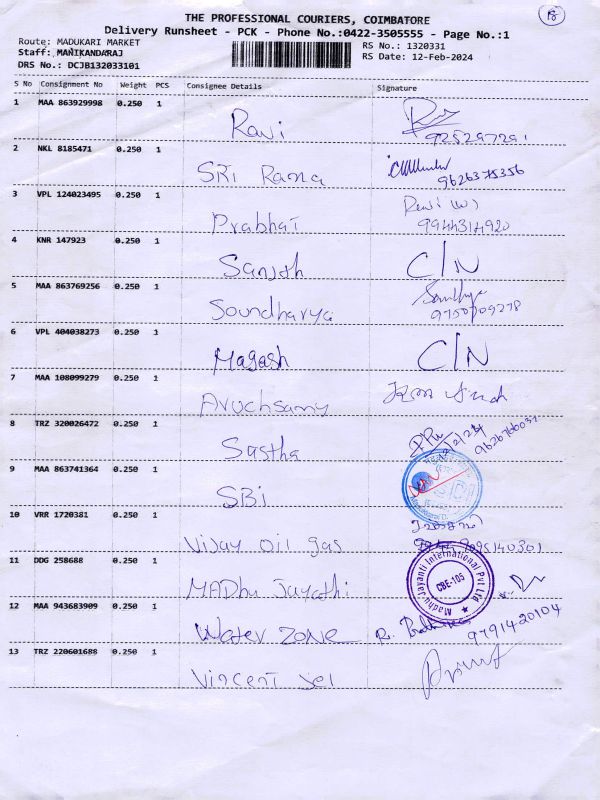 THE PROFESSIONAL COURIERS, COIMBATORE
Delivery Runsheet - PCK - Phone No.:0422-3505555 - Page No.:1
Route: MADUKARI MARKET
Staff: MANIKANDARAJ
DRS No.: DCJB132033101
RS No.: 1320331
RS Date: 12-Feb-2024
S No Consignment No Weight PCS Consignee Details Signature
1 MAA 863929998 0.250 1 Ravi
2 NKL 8185471 0.250 1 SRI Rama 9626375356
3 VPL 124023495 0.250 1 Prabhat 9944314920
4 KNR 147923 0.250 1 Santosh C/N
5 MAA 863769256 0.250 1 Soundharya Sandhya
6 VPL 404038273 0.250 1 Magash C/N
7 MAA 108099279 0.250 1 Aruchsamy
8 TRZ 320026472 0.250 1 Sastha
9 MAA 863741364 0.250 1 SBI
10 VRR 1720381 0.250 1 Vijay oil gas
11 DDG 258688 0.250 1 MADhu Jayathi
Madhu Jayanti International Pvt Ltd
CBE-105
12 MAA 943683909 0.250 1 Water Zone 9791420104
13 TRZ 220601688 0.250 1